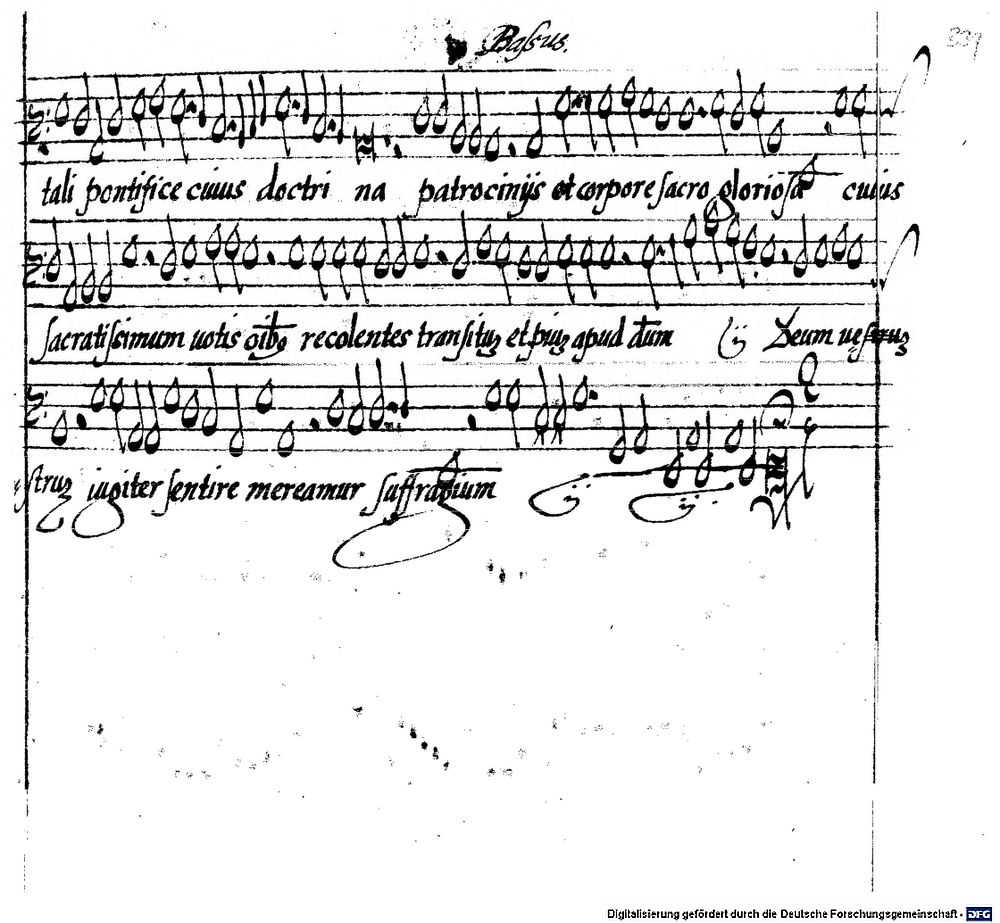 Bassus.
339
tali pontifice cuius doctri na patrocinijs et corpore sacro gloriosa cuius
sacratissimum uotis oib9 recolentes transituʒ et piuʒ apud dūm ij Deum uestruʒ
struʒ iugiter sentire mereamur suffragium ij ij.
Digitalisierung gefördert durch die Deutsche Forschungsgemeinschaft - DFG